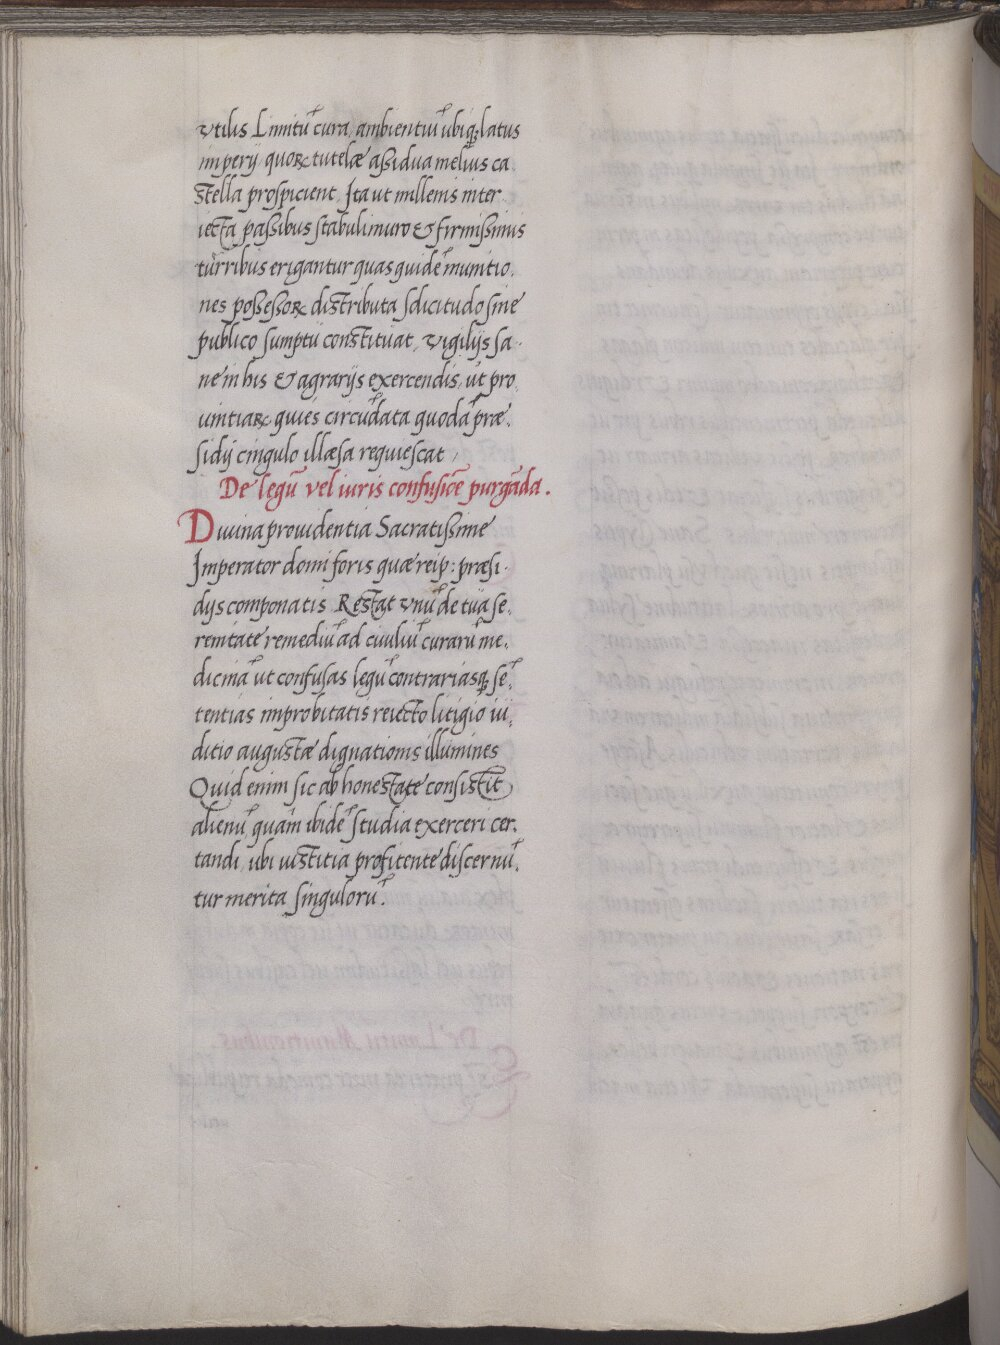 vtilis Limitū cura, ambientiū ubiqꝫ latus
imperij quorꝝ tutelæ assidua melius ca
stella prospicient Ita ut millenis inter
iecta passibus stabuli muro & firmissimis
turribus erigantur quas quidē munitio.
nes possessorꝝ distributa solicitudo sine
publico sumptu constituat, vigilijs sa-
ne in his & agrarijs exercendis, ut pro.
uintiarꝝ quies circūdata quodā præ.
sidij cingulo illæsa requiescat,
De legū vel iuris confusiōe purgāda.
Diuina prouidentia Sacratissime
Imperator domi foris quæ reip: præsi-
dijs componatis Restat vnū de tua se.
renitate remediū ad ciuiliū curarū me.
dicinā ut confusas legū contrariasqꝫ sē.
tentias improbitatis reiecto litigio iu.
ditio augustæ dignationis illumines
Quid enim sic ab honestate consistit
alienū quàm ibidē studia exerceri cer.
tandi, ubi iustitia profitente discernū.
tur merita singulorū.